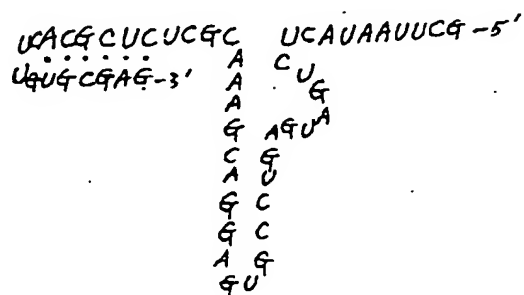 UCACGCUCUCGC UCAUAAUUCG-5'
UGUGCGAG-3' A C U
A G
A A
G AGU
C G
A U
G C
G C
A G
GU